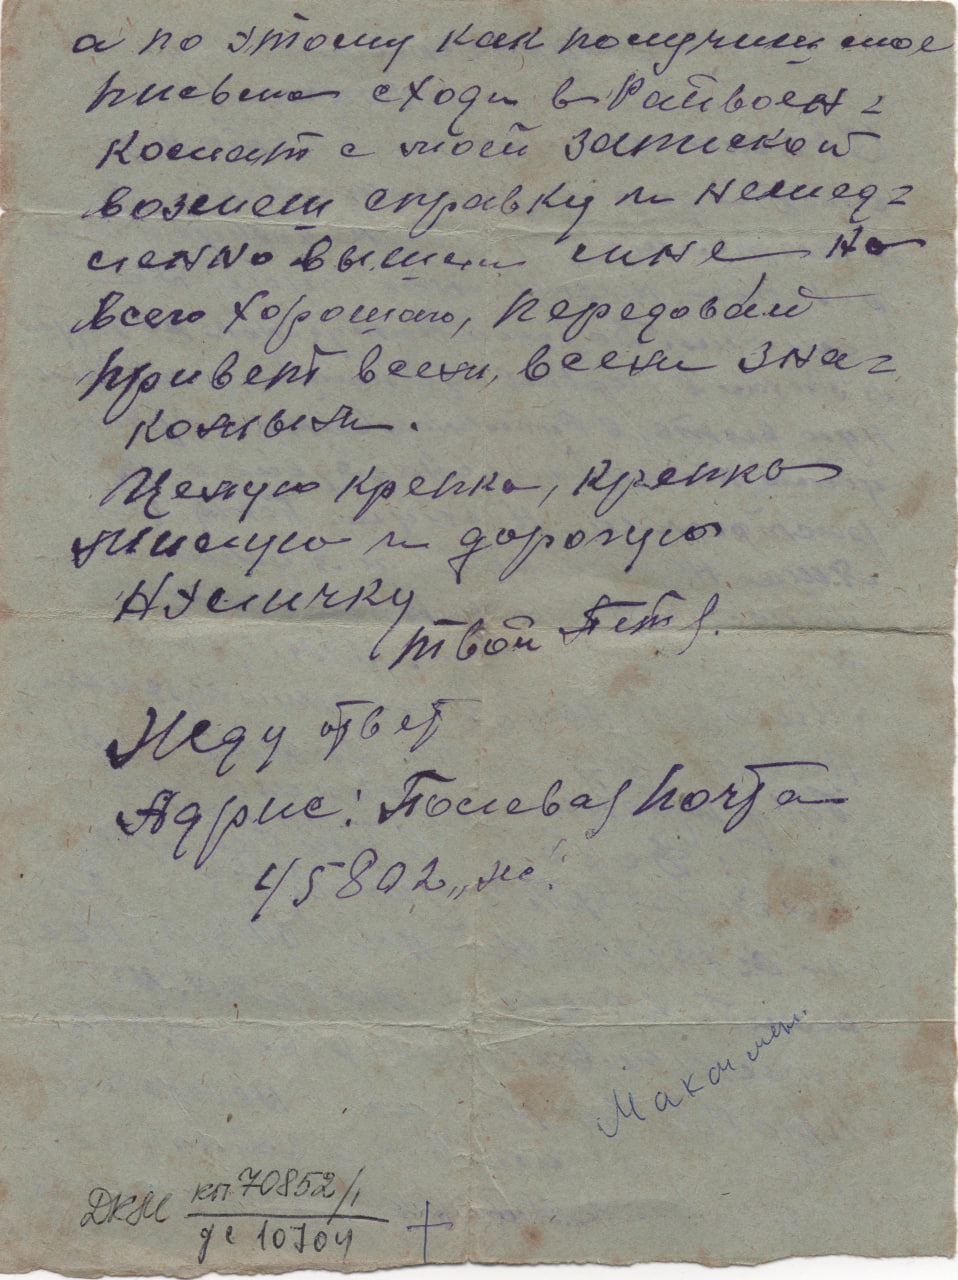 а по этому как получиш мое
письмо сходи в Райвоен=
комат с моей запиской
возмеш справку и немед=
ленно вышли мне но
всего хорошаго, передовай
привет всем, всем зна=
комым.
Целую крепко, крепко
милую и дорогую
Нумичку
твой Петя.
Жду ответ
Адрис: Полевая почта
45802 „но".
ДКМ кп 70852/1
дс 10704